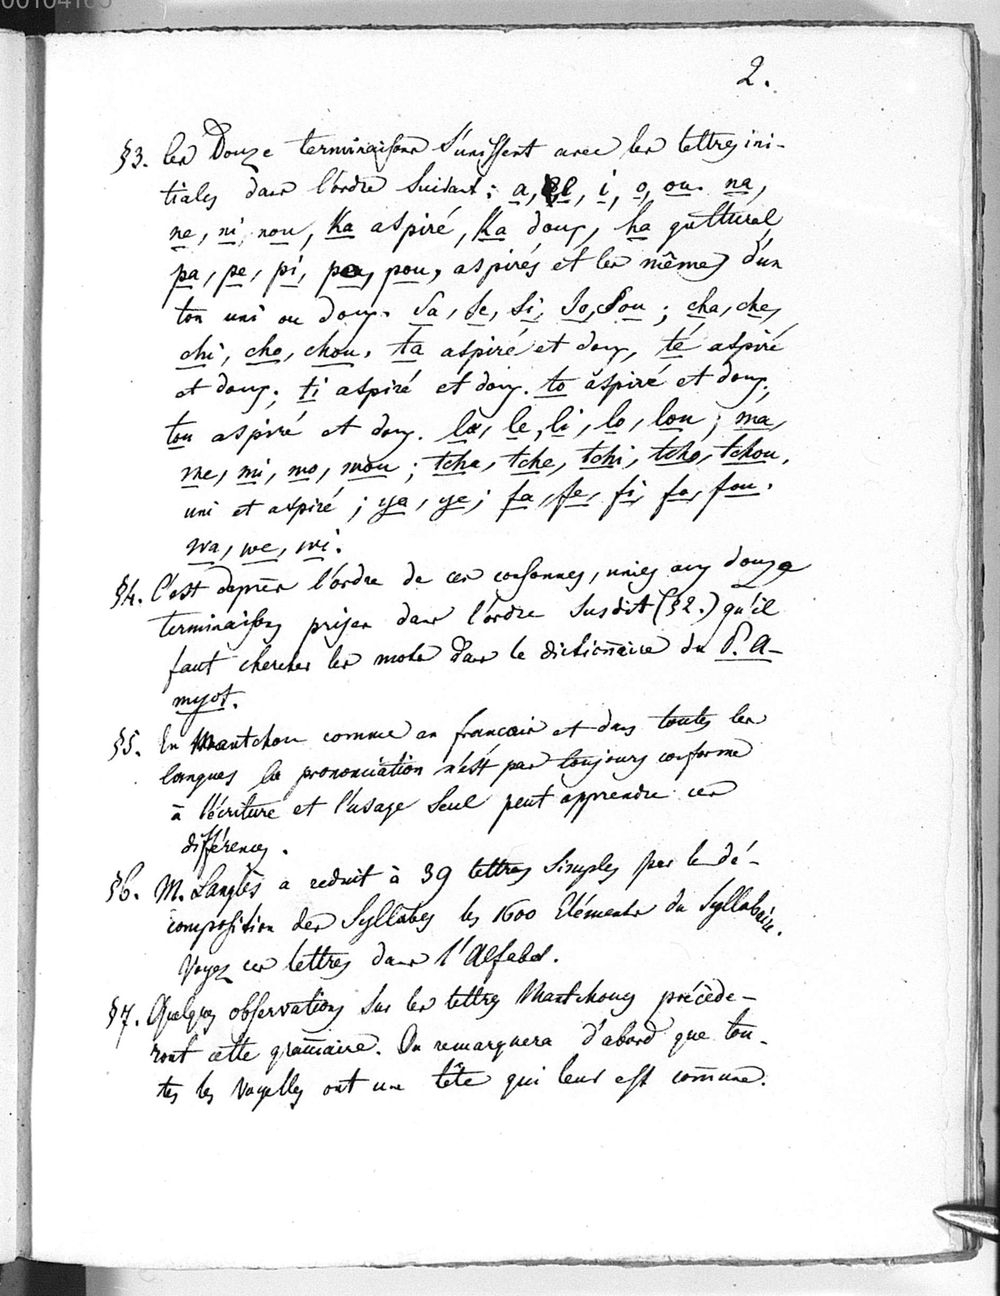 00104163
2.
§3. les Douze terminaisons s'unissent avec les lettres ini-
tiales dans l'ordre suivant: a, e, i, o, ou. na,
ne, ni, nou, Ka aspiré, Ka doux, ha guttural,
pa, pe, pi, po, pou, aspirés et les mêmes d'un
ton uni ou doux. Sa, Se, Si, So, Sou; cha, che,
chi, cho, chou, ta aspiré et doux, té aspiré
et doux; ti aspiré et doux. to aspiré et doux,
tou aspiré et doux. la, le, li, lo, lou; ma,
me, mi, mo, mou; tcha, tche, tchi, tcho, tchou,
uni et aspiré; ya, ye; fa, fe, fi, fo, fou.
wa, we, wi.
§4. C'est d'après l'ordre de ces consonnes, unies aux douze
terminaisons prises dans l'ordre susdit (§2.) qu'il
faut chercher les mots dans le dictionnaire du P. A-
myot.
§5. En Mantchou comme en français et dans toutes les
langues la prononciation n'est pas toujours conforme
à l'écriture et l'usage seul peut apprendre ces
différences.
§6. M. Langlès a reduit à 39 lettres simples par la dé-
composition des Syllabes les 1600 Eléments du Syllabaire.
Voyez ces lettres dans l'Alfabet.
§7. Quelques observations sur les lettres Mantchoux précéde-
ront cette gram̄aire. On remarquera d'abord que tou-
tes les voyelles ont une tête qui leur est com̄une.